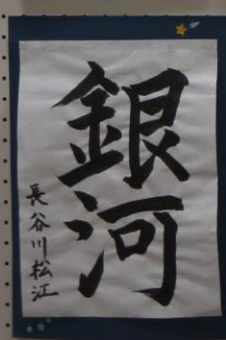 銀河
長谷川松江